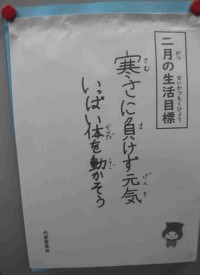 二月の生活目標
がつ せいかつもくひょう
寒さに負けず元気
さむ ま げんき
いっぱい体を動かそう
からだ うご
代表委員会